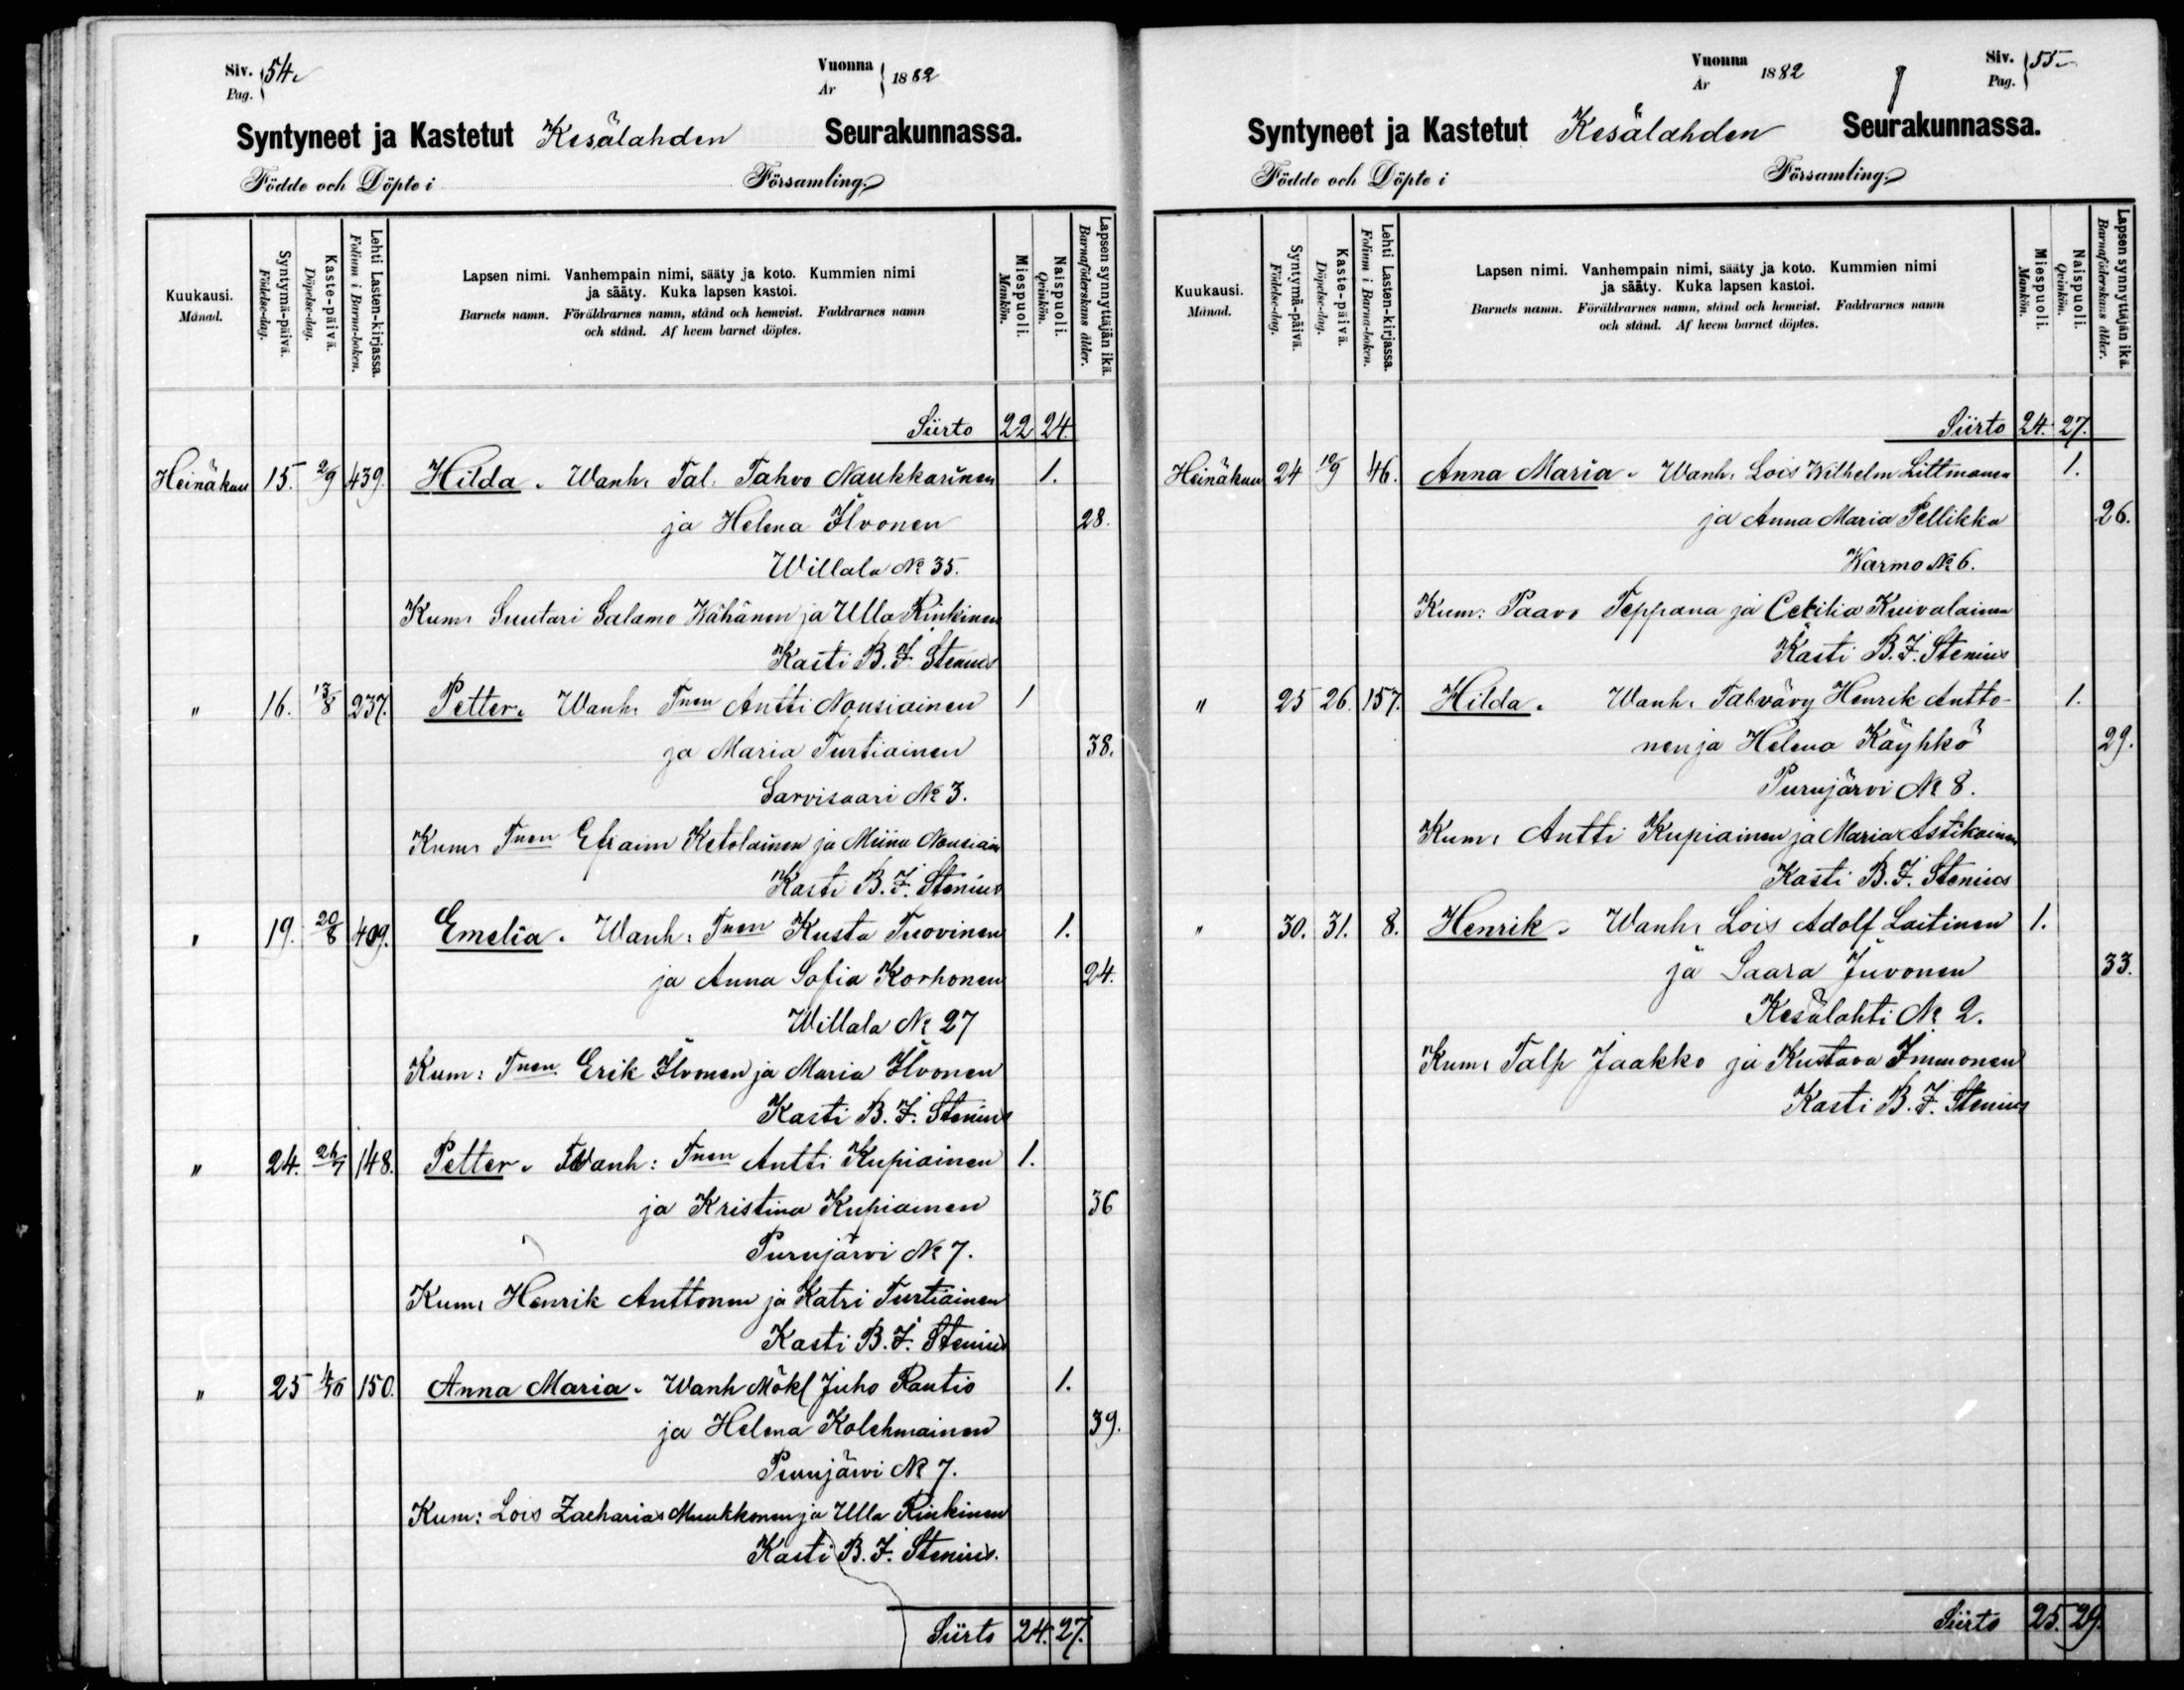 Siv. 54.
Pag.
Vuonna 1882
År
Syntyneet ja Kastetut Kesälahden Seurakunnassa.
Födde och Döpte i Församling.
Kuukausi.
Månad.
Syntymä-päivä.
Födelse-dag.
Kaste-päivä.
Döpelse-dag.
Lehti Lasten-kirjassa.
Folium i Barna-boken.
Lapsen nimi. Vanhempain nimi, sääty ja koto. Kummien nimi
ja sääty. Kuka lapsen kastoi.
Barnets namn. Föräldrarnes namn, stånd och hemvist. Faddrarnes namn
och stånd. Af hvem barnet döptes.
Miespuoli.
Mankön.
Naispuoli.
Qvinkön.
Lapsen synnyttäjän ikä.
Barnaföderskans ålder.
Siirto 22 24
Heinäkuu 15. 2/9 439. Hilda. Wanh. Tal. Tahvo Naukkarinen 1.
ja Helena Ilvonen 28.
Willala № 35.
Kum. Suutari Salamo Wähänen ja Ulla Rinkinen
Kasti B. J. Stenius
" 16. 13/8 237. Petter. Wanh. Tnen Antti Nousiainen 1
ja Maria Turtiainen 38.
Sarvisaari № 3.
Kum. Tnen Efraim Ketolainen ja Miina Nousiain
Kasti B. J. Stenius
" 19. 20/8 409. Emelia. Wanh. Tnen Kusta Tuovinen 1.
ja Anna Sofia Korhonen 24.
Willala № 27
Kum: Tnen Erik Ilvonen ja Maria Ilvonen
Kasti B. J. Stenius
" 24. 26/7 148. Petter. Wanh: Tnen Antti Kupiainen 1.
ja Kristina Kupiainen 36
Purujärvi № 7.
Kum. Henrik Anttonen ja Katri Turtiainen
Kasti B. J. Stenius
" 25 150. Anna Maria. Wanh Mökl Juho Rautio 1.
ja Helena Kolehmainen 39.
Purujärvi № 7.
Kum: Lois Zacharias Muukkonen ja Ulla Rinkinen
Kasti B. J. Stenius.
Siirto 24. 27.
Vuonna 1882
År
Siv. 55
Pag.
Syntyneet ja Kastetut Kesälahden Seurakunnassa.
Födde och Döpte i Församling.
Kuukausi.
Månad.
Syntymä-päivä.
Födelse-dag.
Kaste-päivä.
Döpelse-dag.
Lehti Lasten-kirjassa.
Folium i Barna-boken.
Lapsen nimi. Vanhempain nimi, sääty ja koto. Kummien nimi
ja sääty. Kuka lapsen kastoi.
Barnets namn. Föräldrarnes namn, stånd och hemvist. Faddrarnes namn
och stånd. Af hvem barnet döptes.
Miespuoli.
Mankön.
Naispuoli.
Qvinkön.
Lapsen synnyttäjän ikä.
Barnaföderskans ålder.
Siirto 24. 27.
Heinäkuu 24 10/9 46. Anna Maria. Wanh. Lois Wilhelm Littmanen 1.
ja Anna Maria Pellikka 26.
Warmo № 6.
Kum: Paavo Teppana ja Cecilia Kuivalainen
Kasti B. J. Stenius
" 25 26. 157. Hilda. Wanh. Talvävy Henrik Antto- 1.
nen ja Helena Käyhkö 29.
Purujärvi № 8.
Kum. Antti Kupiainen ja Maria Astikainen
Kasti B. J. Stenius
" 30. 31. 8. Henrik. Wanh. Lois Adolf Laitinen 1.
ja Saara Juvonen 33.
Kesälahti № 2.
Kum. Talp Jaakko ja Kustava Immonen
Kasti B. J. Stenius
Siirto 25. 29.